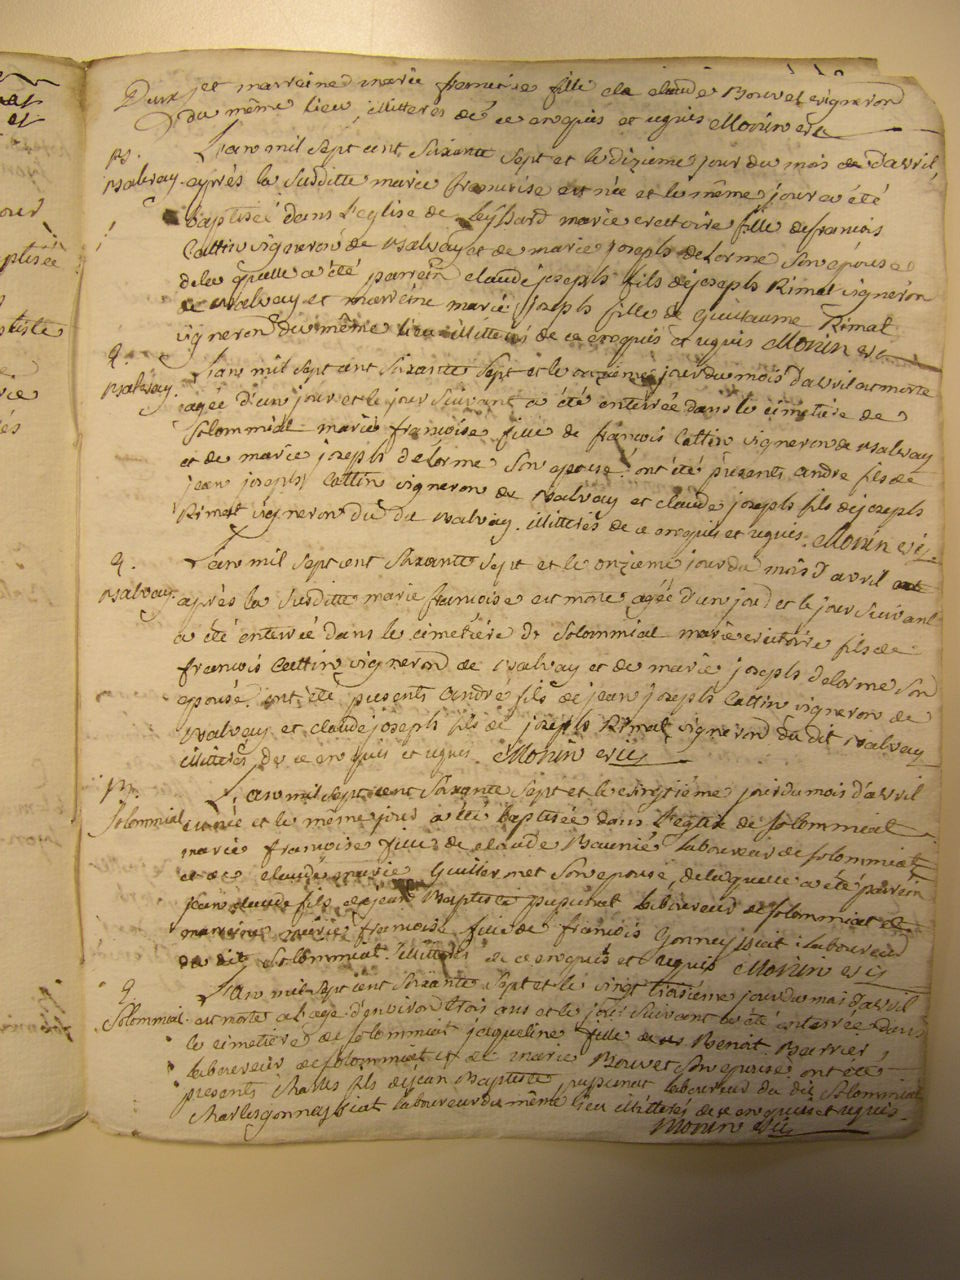 et marreine marie francoise fille de claude Bouvet vigneron
du même lieu, illitteres de ce enquis et requis Morin vic
n.
L'an mil sept cent Soixante Sept et le dizieme jour du mois de d'avril,
valvay. après la Susditte marie francoise est née et le même jour a été
baptiseé dans l'eglise de marie victoire fille de francois
Cattin vigneron de valvay et de marie joseph delorme Son épouse
de la quelle a été parrein claude joseph fils de joseph Rimat vigneron
de valvay et marreine marie joseph fille de guillaume Rimat
vigneron du même lieu illitteres de ce enquis et requis Morin vic
q. L'an mil sept cent Soixante Sept et le onzieme jour du mois d'avril est morte
valvay. agée d'un jour et le jour Suivant a été enterrée dans le cimetiere de
Solommiat marie françoise fille de françois Cattin vigneron de valvay
et de marie joseph delorme Son epouse ont été présents andre fils de
jean joseph Cattin vigneron de valvay et claude joseph fils de joseph
Rimat vigneron du dit valvay. illitterés de ce enquis et requis. Morin vic
q. L'an mil Sept cent Soixante Sept et le onzieme jour du mois d'avril
valvay. après la Susditte marie francoise est morte agée d'un jour et le jour Suivant
a été enterrée dans le cimetiére de Solommiat marie victoire fils de
françois Cattin vigneron de valvay et de marie joseph delorme Son
epouse. ont été presents andré fils de jean joseph Cattin vigneron de
valvay et claude joseph fils de joseph Rimat vigneron du dit valvay
illitterés de ce enquis et requis. Morin vic
n. L'an mil Sept cent Soixante Sept et le vingtiéme jour du mois d'avril
Solommiat est née et le même jour a été baptisée dans l'eglise de Solommiat
marie françoise fille de claude laboureur de Solommiat
et de claudine marie Guillermet Son epouse, de la quelle a été parrein
jean claude fils de jean Baptiste pupunat laboureur de Solommiat et
marreine marie françoise fille de françois Gonney laboureur
du dit Solommiat. illitterés de ce enquis et requis Morin vic
q L'an mil Sept cent Soixante Sept et le vingt troisiéme jour du mois d'avril
Solommiat. est morte a l'age d'environ trois ans et le jour Suivant a été enterrée dans
le cimetiere de Solommiat jaqueline fille de Benoit Barrier,
laboureur de Solommiat et de marie Bouvet Son epouse. ont été
presents Charles fils de jean Baptiste pupunat laboureur du dit Solommiat
Charles gonney laboureur du même lieu illitterés de ce enquis et requis
Morin vic